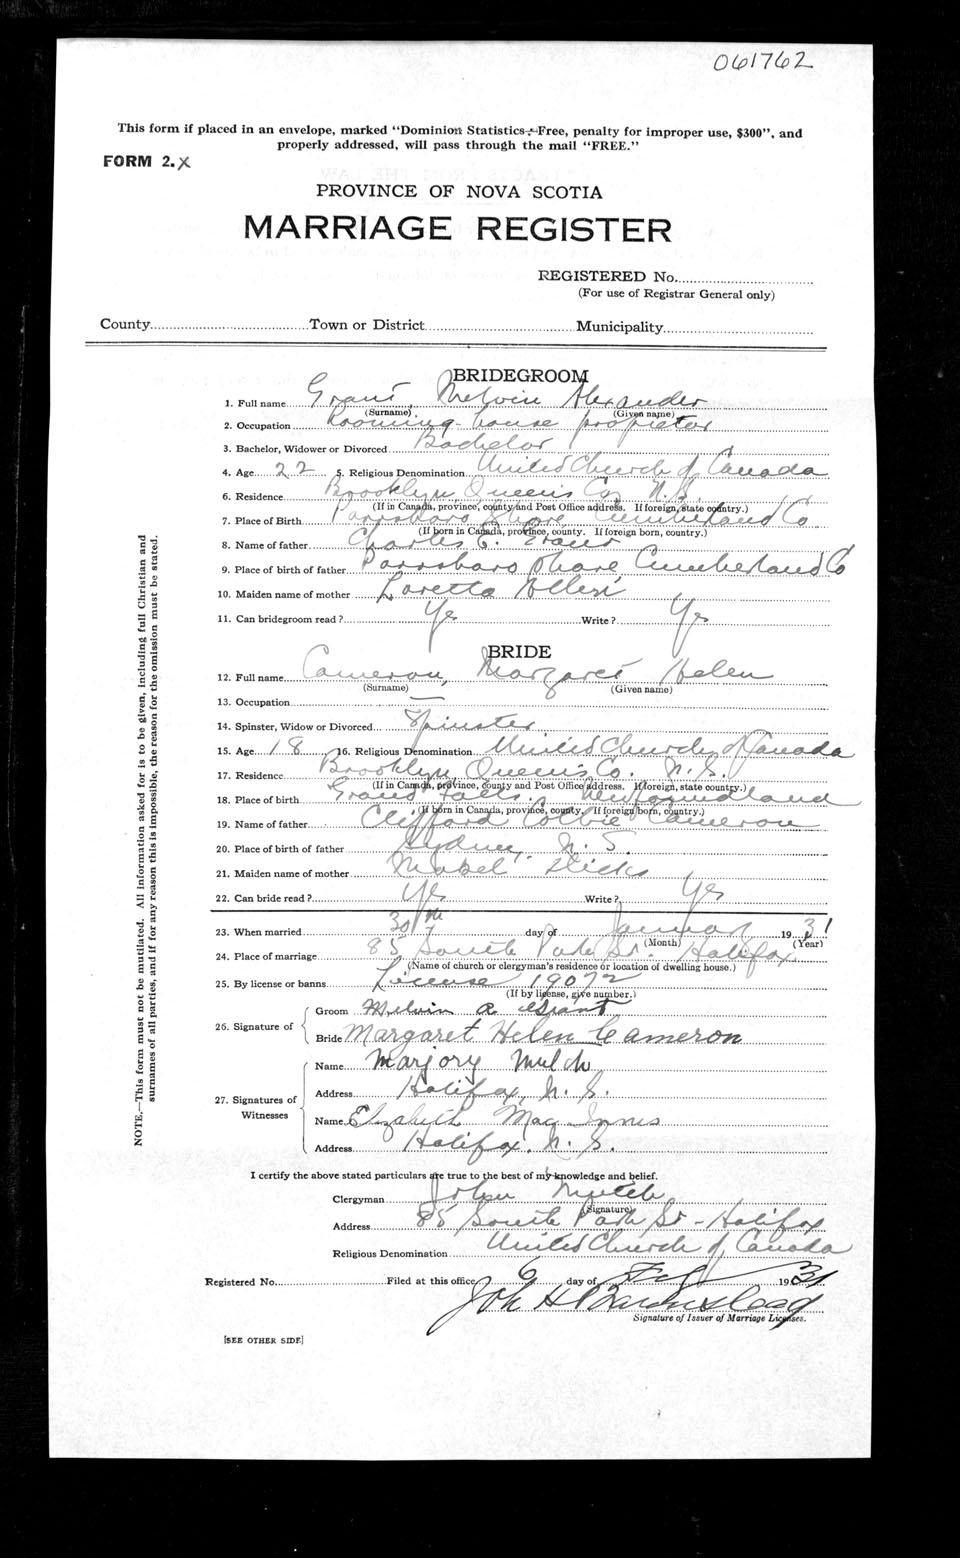 061762
This form if placed in an envelope, marked "Dominion Statistics—Free, penalty for improper use, $300", and
properly addressed, will pass through the mail "FREE."
FORM 2. X
PROVINCE OF NOVA SCOTIA
MARRIAGE REGISTER
REGISTERED No.
(For use of Registrar General only)
County Town or District Municipality
BRIDEGROOM
1. Full name Grant, Melvin Alexander
(Surname) (Given name)
2. Occupation Rooming-house proprietor
3. Bachelor, Widower or Divorced Bachelor
4. Age 22 5. Religious Denomination United Church of Canada
6. Residence Brooklyn Queen's Co. N.S.
(If in Canada, province, county and Post Office address. If foreign, state country.)
7. Place of Birth Parrsboro Shore Cumberland Co
(If born in Canada, province, county. If foreign born, country.)
8. Name of father Charles E. Grant
9. Place of birth of father Parrsboro Shore, Cumberland Co
10. Maiden name of mother Loretta Allen
11. Can bridegroom read? Yes Write? Yes
BRIDE
12. Full name Cameron, Margaret Helen
(Surname) (Given name)
13. Occupation —
14. Spinster, Widow or Divorced Spinster
15. Age 18 16. Religious Denomination United Church of Canada
17. Residence Brooklyn, Queen's Co. N.S.
(If in Canada, province, county and Post Office address. If foreign, state country.)
18. Place of birth Grand Falls, Newfoundland
(If born in Canada, province, county. If foreign born, country.)
19. Name of father Clifford Cameron
20. Place of birth of father Sydney, N.S.
21. Maiden name of mother Mabel Hicks
22. Can bride read? Yes Write? Yes
23. When married 30th day of January 1931
(Month) (Year)
24. Place of marriage 85 South Park St. Halifax
(Name of church or clergyman's residence or location of dwelling house.)
25. By license or banns License 19072
(If by license, give number.)
26. Signature of
Groom Melvin A Grant
Bride Margaret Helen Cameron
27. Signatures of Witnesses
Name Marjory Mutch
Address Halifax, N.S.
Name Elizabeth MacInnis
Address Halifax, N.S.
I certify the above stated particulars are true to the best of my knowledge and belief.
Clergyman John Mutch
(Signature)
Address 85 South Park St - Halifax
Religious Denomination United Church of Canada
Registered No. Filed at this office 6 day of Feb 1931
Signature of Issuer of Marriage Licenses.
[SEE OTHER SIDE]
NOTE.—This form must not be mutilated. All information asked for is to be given, including full Christian and
surnames of all parties, and if for any reason this is impossible, the reason for the omission must be stated.